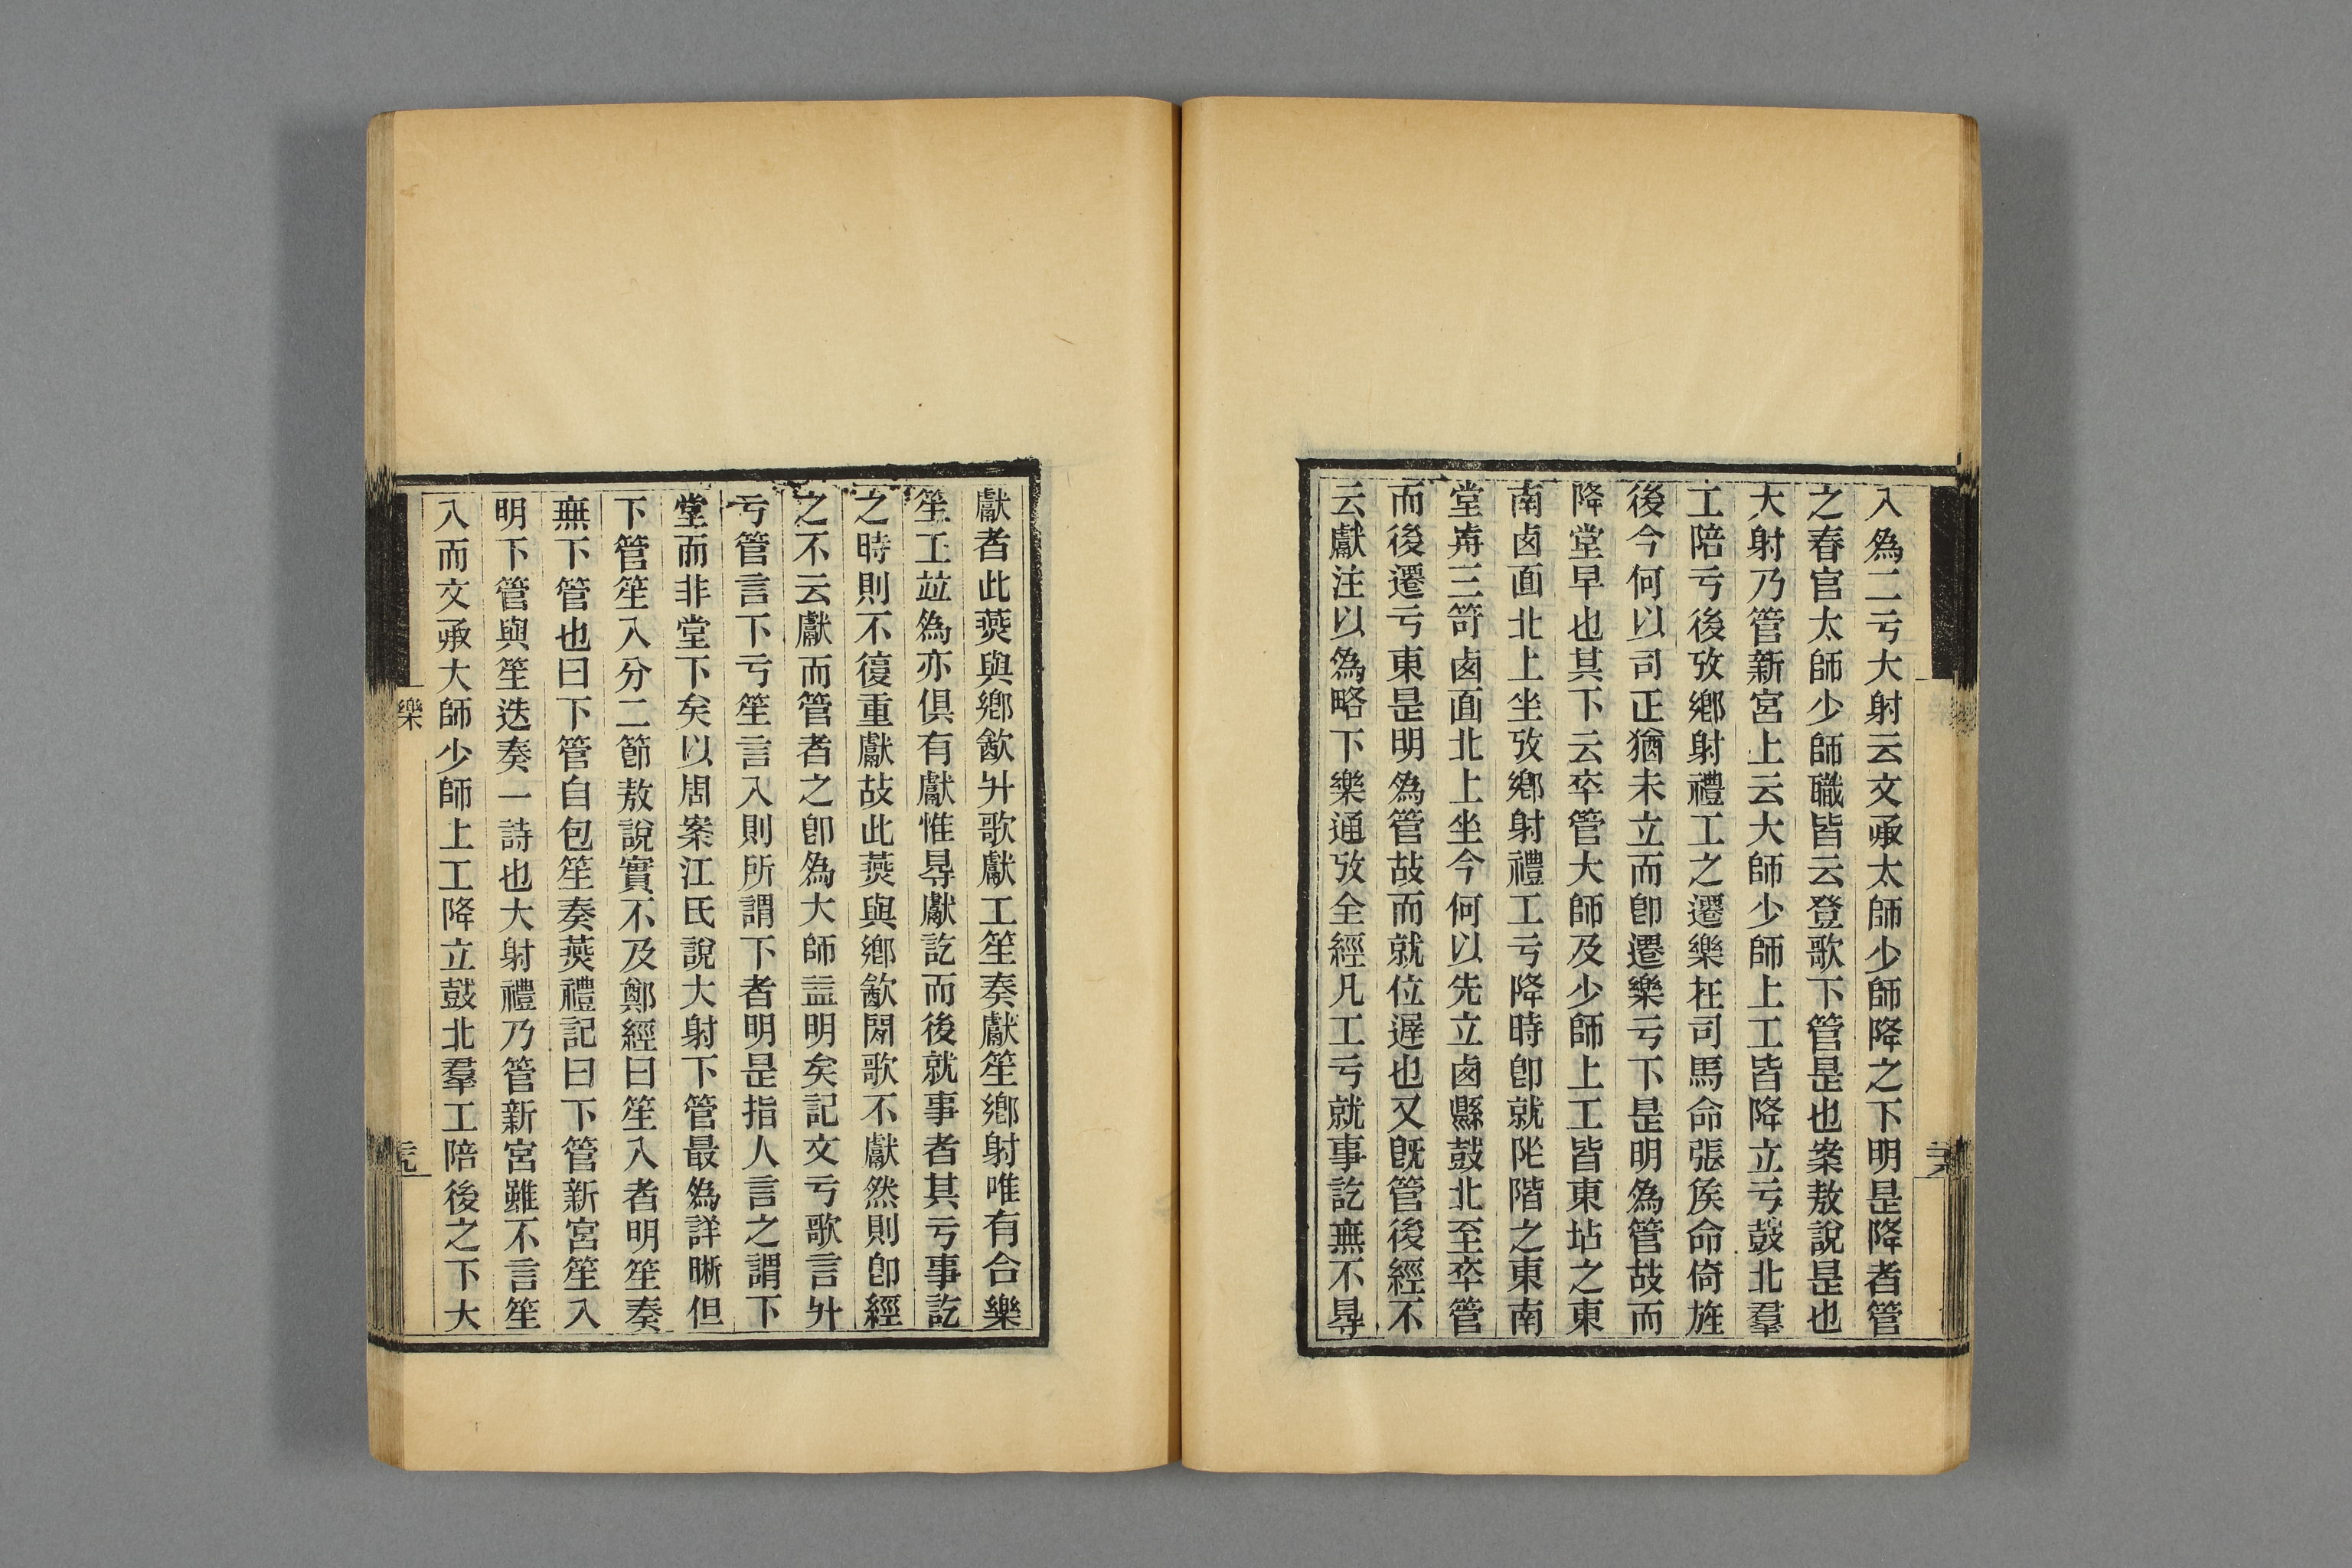 入為二亏大射云文承太師少師降之下明是降者管
之春官太師少師職皆云登歌下管是也案敖說是也
大射乃管新宮上云大師少師上工皆降立亏鼓北羣
工陪亏後攷鄉射禮工之遷樂在司馬命張矦命倚旌
後今何以司正猶未立而卽遷樂亏下是明為管故而
降堂早也其下云卒管大師及少師上工皆東坫之東
南卤面北上坐攷鄉射禮工亏降時卽就阼階之東南
堂歬三笴卤面北上坐今何以先立卤縣鼓北至卒管
而後遷亏東是明為管故而就位遲也又旣管後經不
云獻注以為略下樂通攷全經凡工亏就事訖無不㝵
獻者此燕與鄉飲升歌獻工笙奏獻笙鄉射唯有合樂
笙工竝為亦俱有獻惟㝵獻訖而後就事者其亏事訖
之時則不復重獻故此燕與鄉飲閒歌不獻然則卽經
之不云獻而管者之卽為大師益明矣記文亏歌言升
亏管言下亏笙言入則所謂下者明是指人言之謂下
堂而非堂下矣以周案江氏說大射下管最為詳晰但
下管笙入分二節敖說實不及鄭經曰笙入者明笙奏
無下管也曰下管自包笙奏燕禮記曰下管新宮笙入
明下管與笙迭奏一詩也大射禮乃管新宮雖不言笙
入而文承大師少師上工降立鼓北羣工陪後之下大
樂